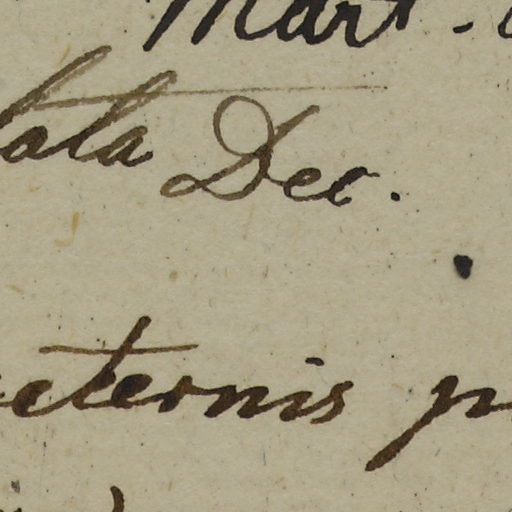 Mart.
lata Dec.
aeternis